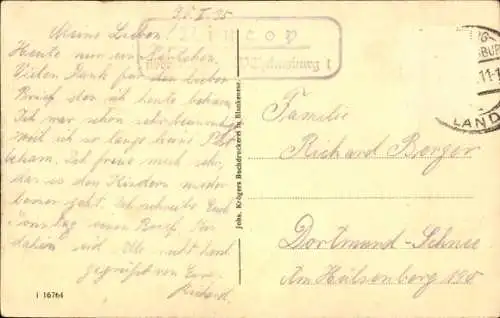 Meine Lieben!
Heute nur ein Kärtchen.
Vielen Dank für den lieben
Brief den ich heute bekam.
Ich war schon sehr
weil ich so lange keine Post
bekam. Ich freue mich sehr,
das es den Kindern wieder
besser geht. Ich schreibe Euch
Sonntag einen Brief. Bis
dahin seid Alle
gegrüßt von Euren
Richard.
Johs. Krögers Buchdruckerei in Blankenese.
LAND
Familie
Richard Berger
Dortmund-Schnee
Am Hülsenberg 180
I 16764